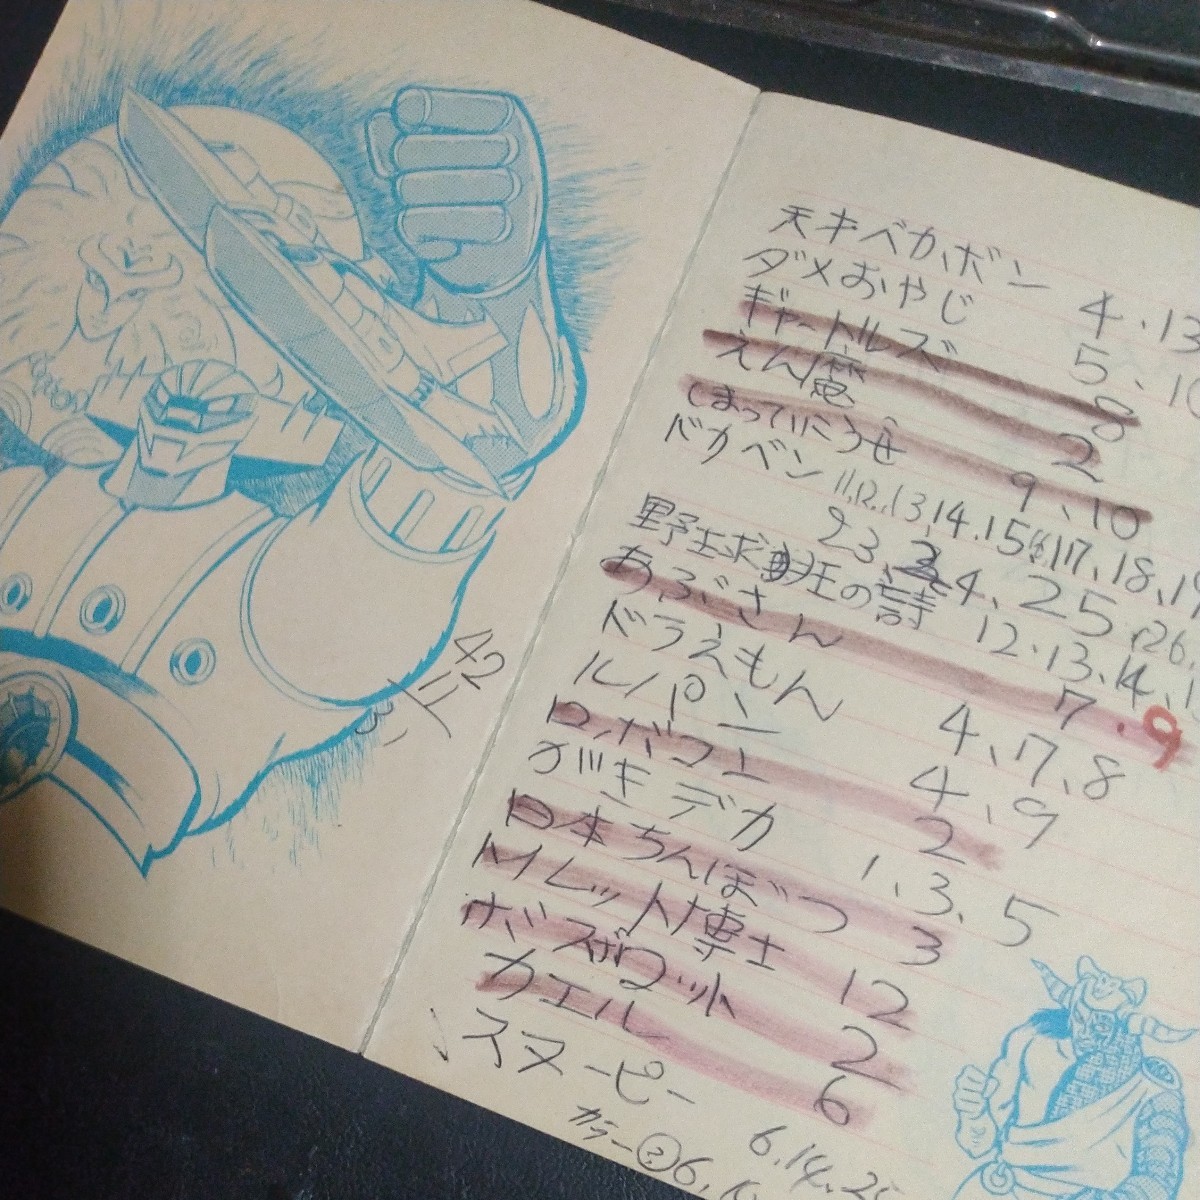 天才バカボン 4.13
ダメおやじ 5、10
ギャートルズ 8
えん魔 2
しまっていこうぜ 9、10
ドカベン 11,12,13,14.15,16,17、18、19
23、24、25、26
野球狂の詩 12.13.14、1
あぶさん 7.9
ドラえもん 4、7、8
ルパン 4、9
ロボコン 2
がきデカ 1、3、5
日本ちんぼつ 3
ハレット博士 12
カエル 6
スヌーピー 6.14.2
カラー②6、
42